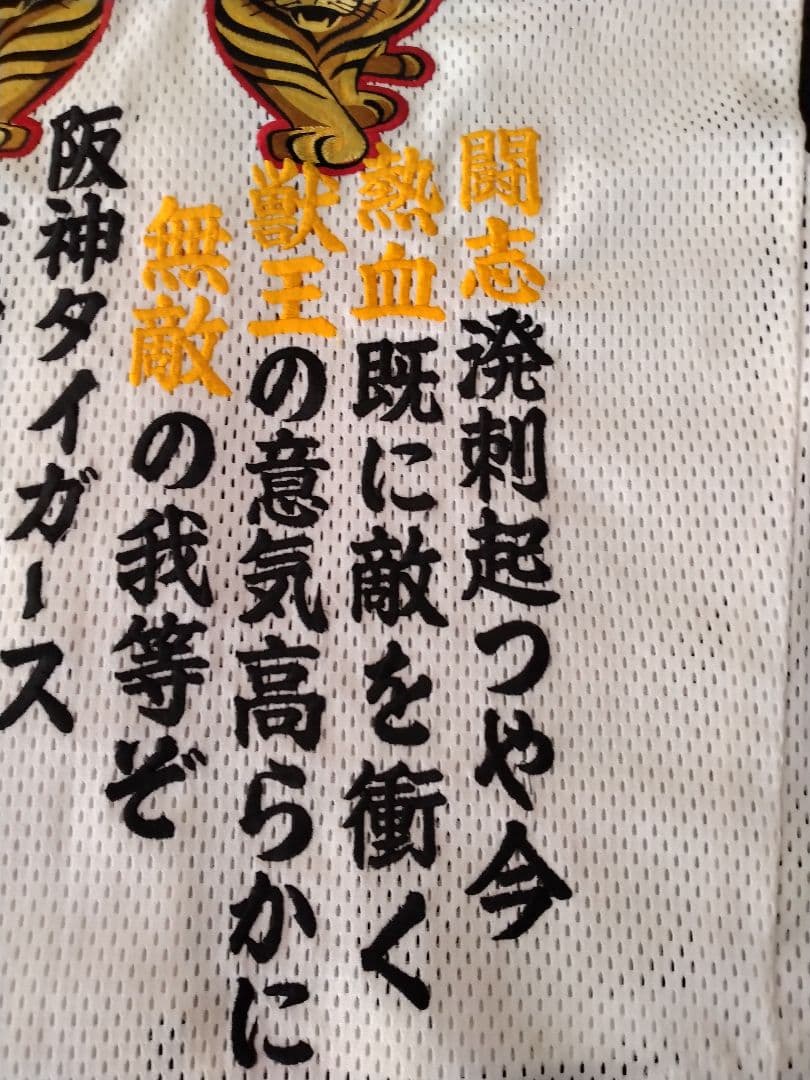 闘志溌刺起つや今
熱血既に敵を衝く
獣王の意気高らかに
無敵の我等ぞ
阪神タイガース